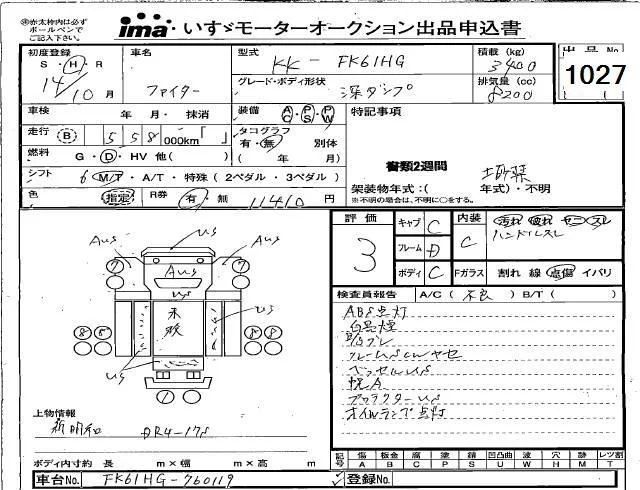 ※赤太枠内は必ず
ボールペンで
ご記入下さい。
ima いすゞモーターオークション出品申込書
初度登録 車名 型式 積載 (kg) 出品No.
S・H・R KK-FK61HG 3400 1027
14/10月 ファイター グレード・ボディ形状 深ダンプ 排気量 (cc) 8200
車検 年 月・ 抹消 装備 AC・PS・PW 特記事項
走行 B 558 000km「 」 タコグラフ 有・無 別体
燃料 G・D・HV 他( ) ( 年 月)
書類2週間 土砂禁
シフト 6 M/T・A/T・特殊 (2ペダル・3ペダル) 架装物年式:( 年式)・不明
※不明の場合は、不明に○をする。
色 指定 R券 有・無 11410 円
評価 3 キャブ C 内装 C 汚れ 破れ ヤニ スレ
ハンドルスレ
フレーム D
ボディ C Fガラス 割れ 線 点傷 イバリ
検査員報告 A/C (不良) B/T ( )
ABS点灯
白黒煙
フレームUSCWヤセ
ベッセルUS
プロテクターUS
オイルランプ点灯
US
AUS AUS
7 AUS 7
US
未改 US
8 5 8 8
US
1
上物情報
新明和 DR4-17S
ボディ内寸約 長 m×幅 m×高 m
記号 傷 板金 腐 塗 錆 凹凸曲 波 穴 跡 レンズ割
A B C P S U W H M T
車台No. FK61HG-760119 登録No.